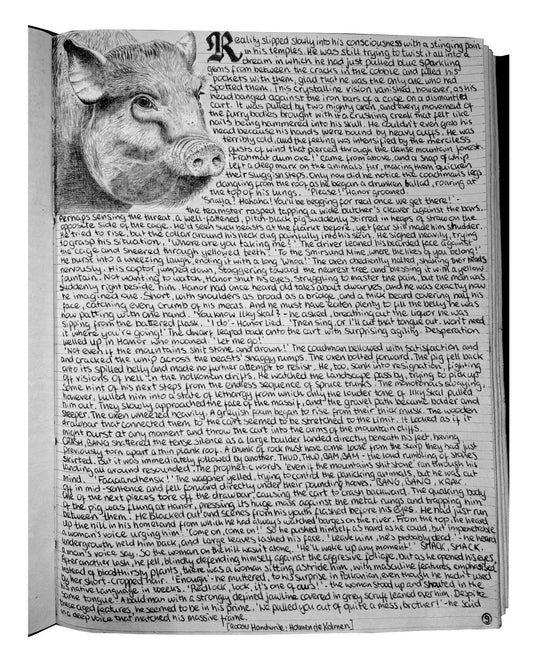 Reality slipped slowly into his consciousness with a stinging pain
in his temples. He was still trying to twist it all into a
dream in which he had just pulled blue sparkling
gems from between the cracks in the cobble and filled his
pockets with them, glad that he was the only one who had
spotted them. This crystalline vision vanished, however, as his
head banged against the iron bars of a cage on a dismantled
cart. It was pulled by two mighty oxen, and every movement of
the furry bodies brought with it a crushing creak that felt like
nails being hammered into his skull. He couldn't even grab his
head because his hands were bound by heavy cuffs. He was
terribly cold, and the feeling was intensified by the merciless
gusts of wind that pierced through the dense mountain forest.
came from above, and a snap of whip
left a deep mark on the animals' fur, making them quicken
their sluggish steps. Only now did he notice the coachman's legs
dangling from the roof as he began a drunken ballad, roaring at
the top of his lungs. 'Please!' Hanor groaned.
Hahaha! You'll be begging for real once we get there!' -
the teamster rasped tapping a wide butcher's cleaver against the bars.
Perhaps sensing the threat, a well-fattened, pitch-black pig suddenly stirred in heaps of straw on the
opposite side of the cage. He'd seen such beasts at the market before, yet fear still made him shudder.
He tried to rise, but the collar around his neck dug painfully into his skin. He sighed heavily, trying
to grasp his situation. 'Where are you taking me?' The driver leaned his bearded face against
the cage and sneered through yellowed teeth. 'To the Mine, where the likes of you belong!'
he burst into a wheezing laugh, ending it with a long 'Whoa'. The oxen obediently halted, shaking their heads
nervously. His captor jumped down, staggering toward the nearest tree, and blessing it with a yellow
fountain. Not wanting to watch, Hanor shut his eyes, struggling to master the pain, but the man was
suddenly right beside him. Hanor had once heard old tales about dwarves, and he was exactly how
he imagined one. Short, with shoulders as broad as a bridge, and a thick beard covering half his
face, catching every crumb of his meals. And he must have eaten plenty to fill the belly he was
now patting with one hand. 'You know Ilky Skal?' - he asked, breathing out the liquor he was
sipping from the battered flask. 'I do' - Hanor lied. 'Then sing, or I'll cut that tongue out, won't need
it where you're going!' The dwarf leaped back onto the cart with surprising agility. Desperation
welled up in Hanor who moaned 'Let me go!'
'Not even if the mountains shit stone, and drown!' The coachman bellowed with satisfaction and
and cracked the whip across the beasts' shaggy rumps. The oxen bolted forward. The pig fell back
onto its spilled belly and made no further attempt to resist. He, too, sank into resignation, fighting
of visions of hell in the drifts. He watched the landscape pass by, trying to pick up
some hint of his next steps from the endless sequence of spruce trunks. The monotonous swaying,
however, lulled him into a state of lethargy from which only the louder tone of Ilky Skal pulled
him out. They slowly approached the face of the massif, and the gravel path became harder and
steeper. The oxen wheezed heavily. A greyish foam began to rise from their thick musk. The wooden
drawbar that connected them to the cart seemed to be stretched to the limit. It looked as if it
might burst at any moment and throw the cart into the arms of the mountain cliffs.
CRASH, BANG shattered the tense silence as a large boulder landed directly beneath his feet, having
previously torn apart a thin plank roof. A chunk of rock must have come loose from the scarp they had just
skirted. But it was immediately followed by another. THUD, THUD, BAM, BAM - the loud rumbling of stones
landing all around resounded. The prophetic words 'even if the mountains shit stone' ran through his
mind. the waggoner yelled, trying to control the panicking animals, but he was cut
off in mid-sentence and fell forward directly under their pounding hooves. BANG, BANG, KRAK
one of the next pieces tore off the drawbar, causing the cart to crash backward. The squealing body
of the pig was flung at Hanor, pressing its huge mass against the metal rungs and trapping him
between them. He blacked out and scenes from his youth flashed before his eyes. He had just run
up the hill in his homeland from which he had always watched barges on the river. From the top, he heard
a woman's voice urging him! 'Come on, come on!' So he pushed himself as hard as he could, but impenetrable
undergrowth held him back, and large leaves lashed his face. 'Leave him, he's probably dead' - he heard
a man's voice say. So the woman on the hill wasn't alone. 'He'll wake up any moment!' SMACK, SMACK.
After another lash, he fell, blindly defending himself against the aggressive foliage, but as he opened his eyes,
instead of bloodthirsty plants, there was a woman sitting astride him, with masculine features emphasised
by her short-cropped hair. 'Enough' - he muttered, to his surprise in even though he hadn't used
his native language in weeks. look, it's one of ours!' - the woman stood up and shouted in the
same tongue. A bald man with a strongly defined jawline covered in grey scruff leaned over him. Despite
these aged features, he seemed to be in his prime. 'We pulled you out of quite a mess, brother!' - he said
in a deep voice that matched his massive frame.
9